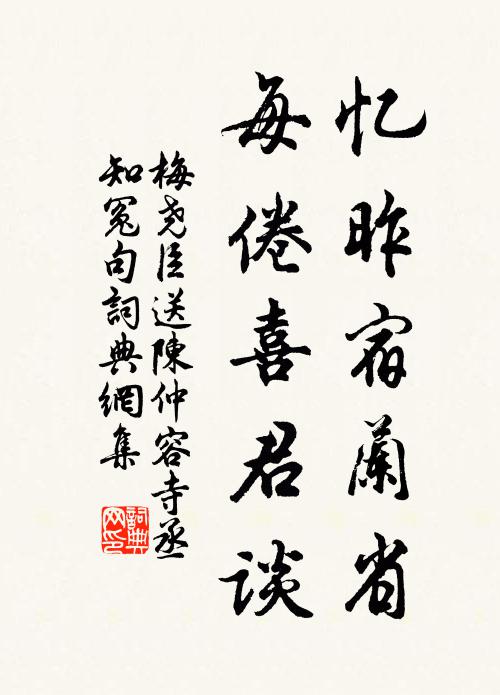 忆昨宿蘭省
每倦喜君谈
梅尧臣送陳仲容寺丞
知冤句詞典網集
詞典网印